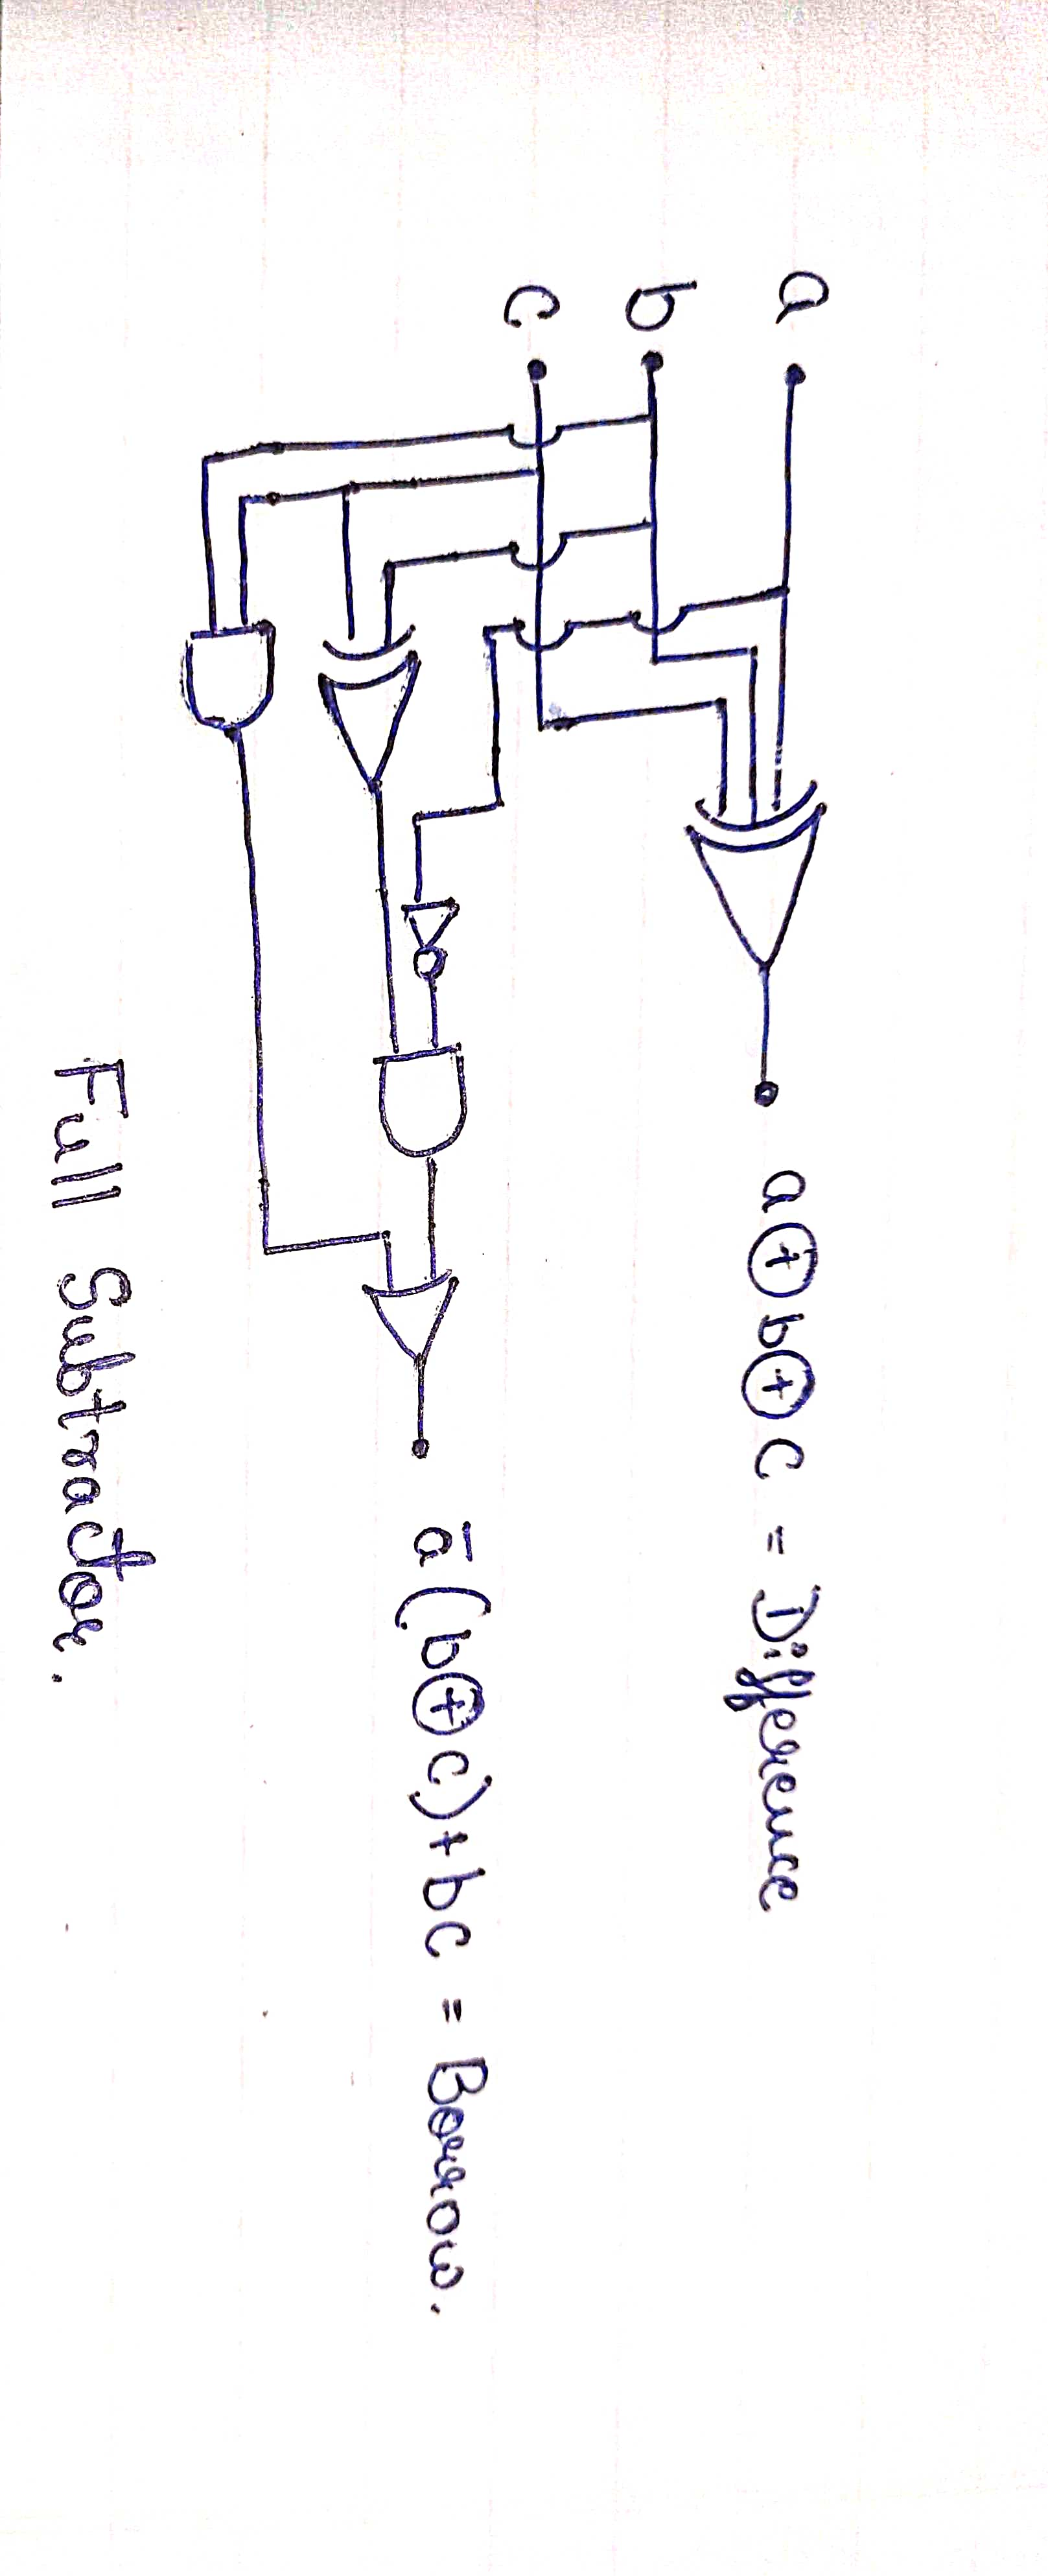 a
b
c
a⊕b⊕c = Difference
ā(b⊕c)+bc = Borrow.
Full Subtractor.